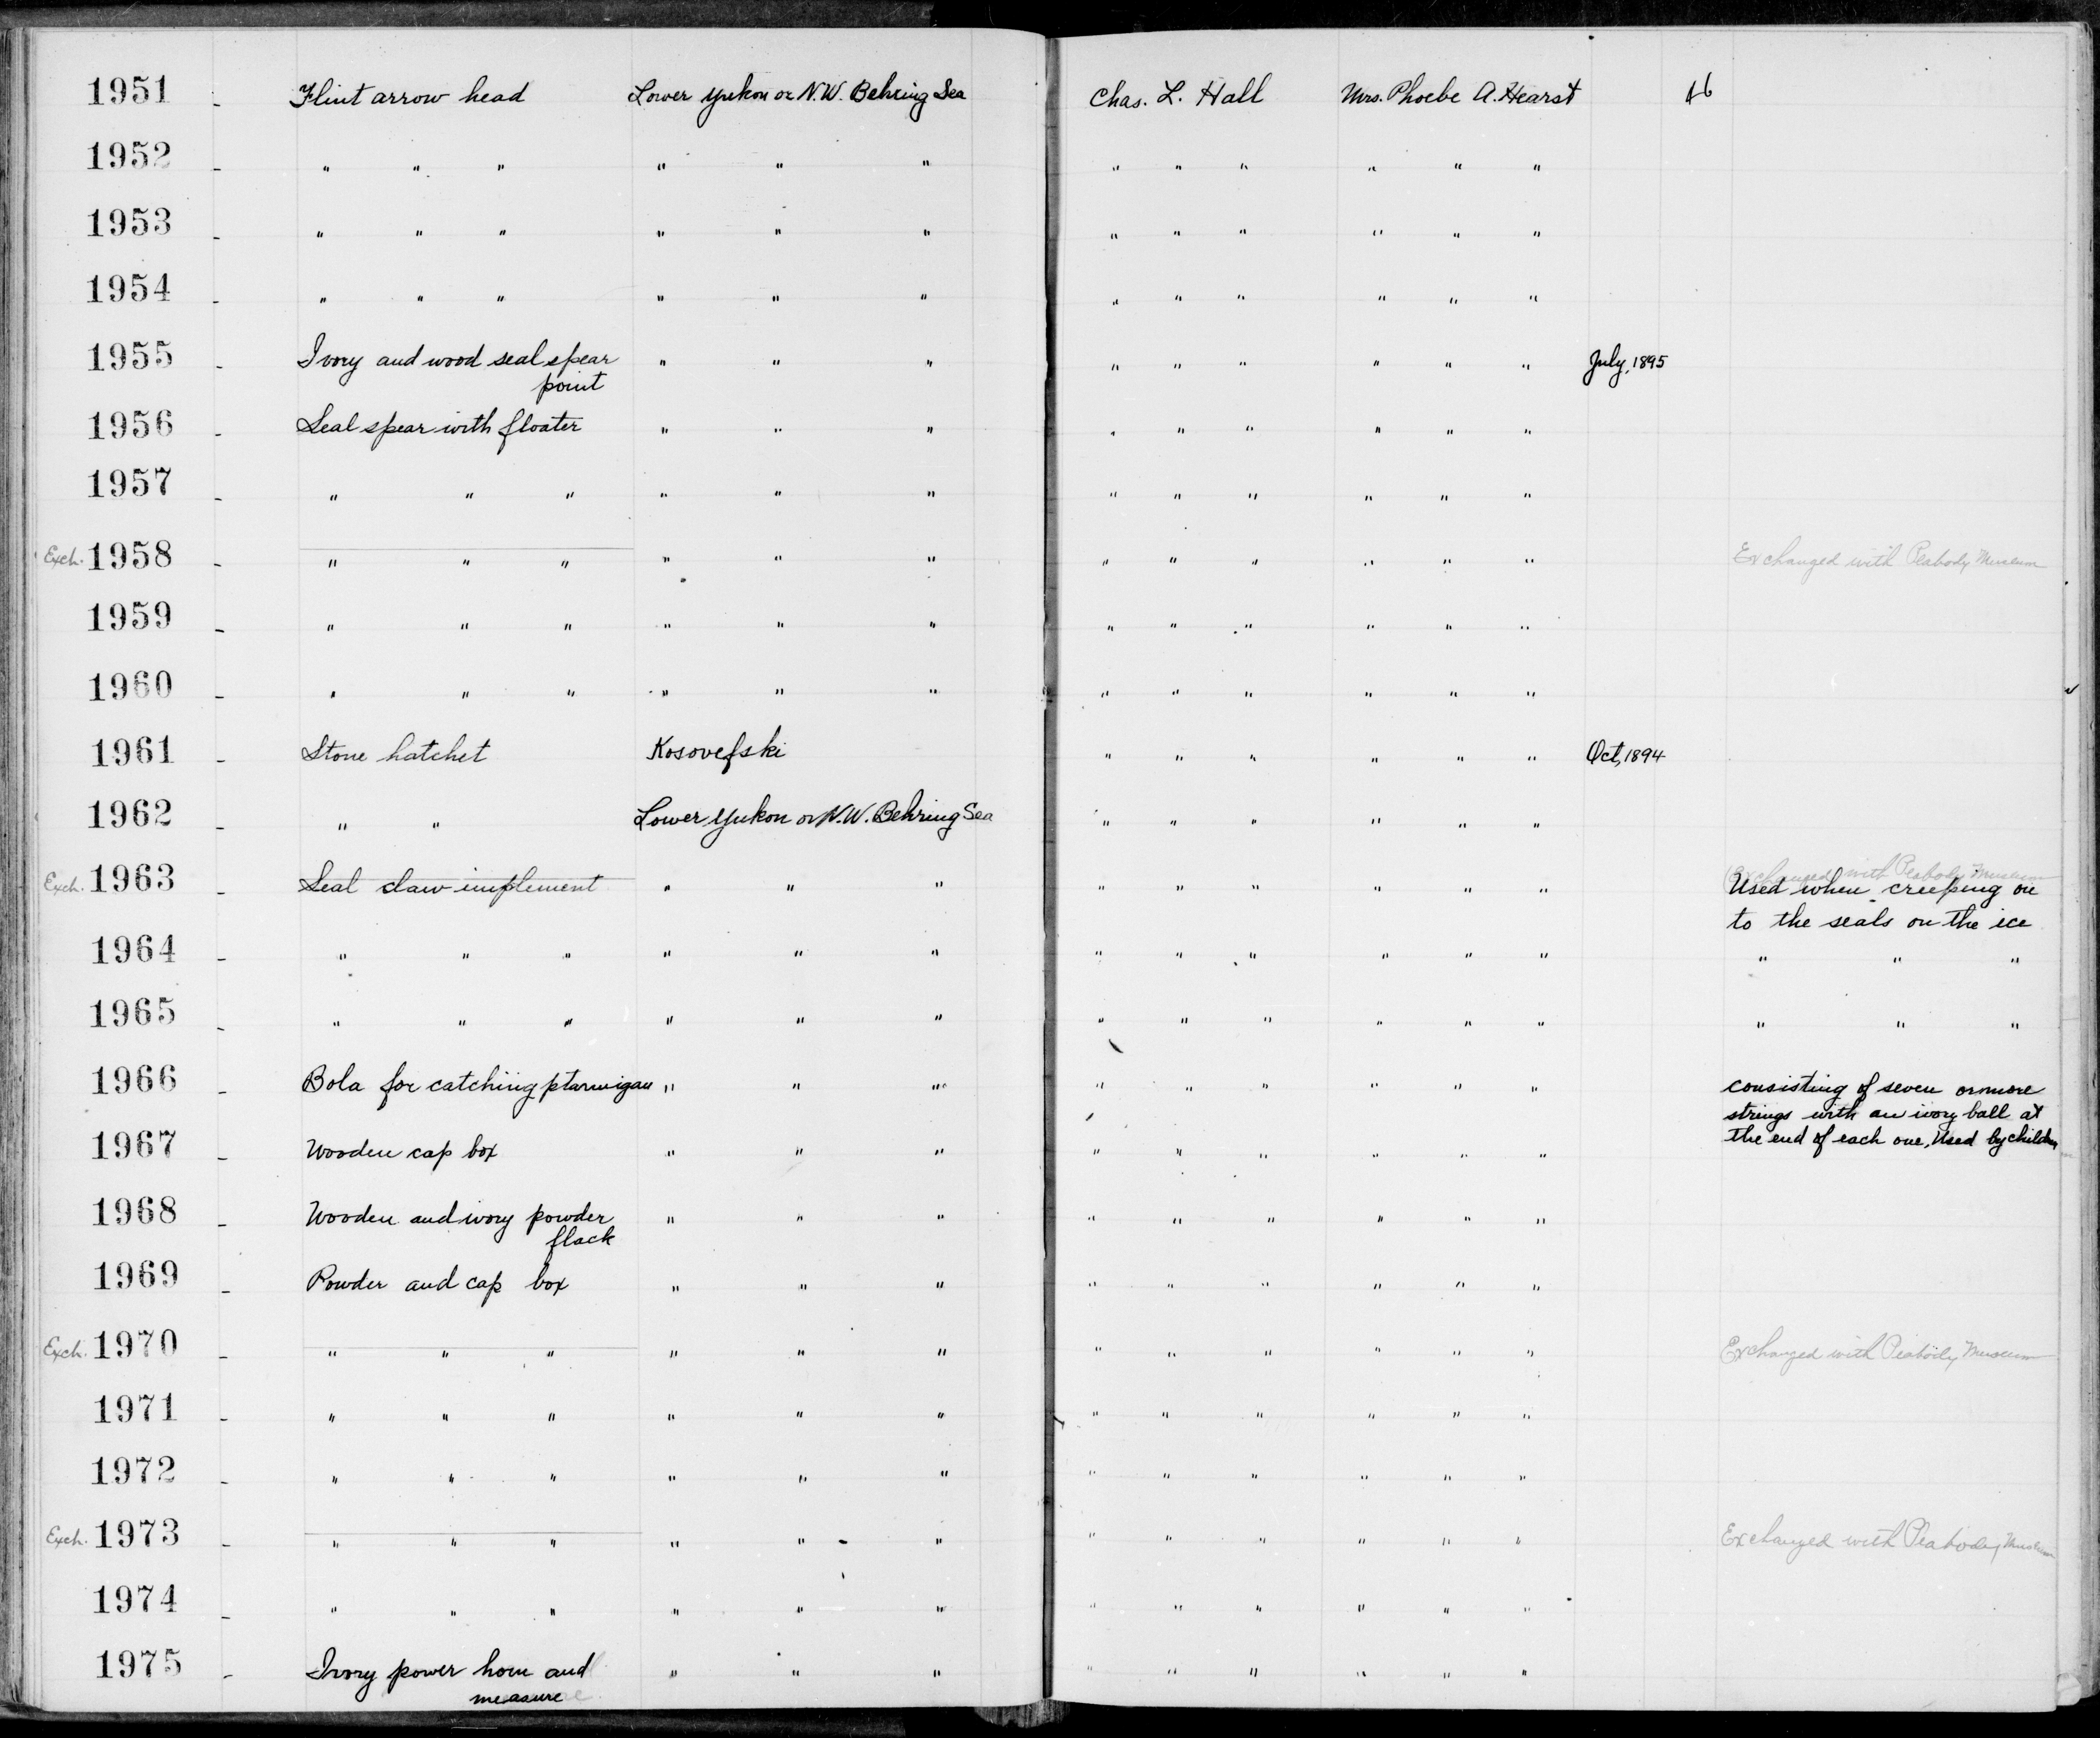 1951 - Flint arrow head Lower Yukon or N.W. Behring Sea Chas. L. Hall Mrs. Phoebe A. Hearst
1952 - " " " " " " " " " " " "
1953 - " " " " " " " " " " " "
1954 - " " " " " " " " " " " "
1955 - Ivory and wood seal spear " " " " " " " " " July, 1895
point
1956 - Seal spear with floater " " " " " " " " "
1957 - " " " " " " " " " " " "
Exch. 1958 - " " " " " " " " " " " " Exchanged with Peabody Museum
1959 - " " " " " " " " " " " "
1960 - " " " " " " " " " " " "
1961 - Stone hatchet Kosovefski " " " " " " Oct, 1894
1962 - " " Lower Yukon or N.W. Behring Sea " " " " " "
Exchanged with Peabody Museum
Exch. 1963 - Seal claw implement " " " " " " " " " Used when creeping on
to the seals on the ice
1964 - " " " " " " " " " " " " " " "
1965 - " " " " " " " " " " " " " " "
1966 - Bola for catching ptarmigan " " " " " " " " " consisting of seven or more
strings with an ivory ball at
the end of each one. Used by children
1967 - Wooden cap box " " " " " " " " "
1968 - Wooden and ivory powder " " " " " " " " "
flack
1969 - Powder and cap box " " " " " " " " "
Exch. 1970 - " " " " " " " " " " " " Exchanged with Peabody Museum
1971 - " " " " " " " " " " " "
1972 - " " " " " " " " " " " "
Exch. 1973 - " " " " " " " " " " " " Exchanged with Peabody Museum
1974 - " " " " " " " " " " " "
1975 - Ivory power horn and " " " " " " " " "
measure